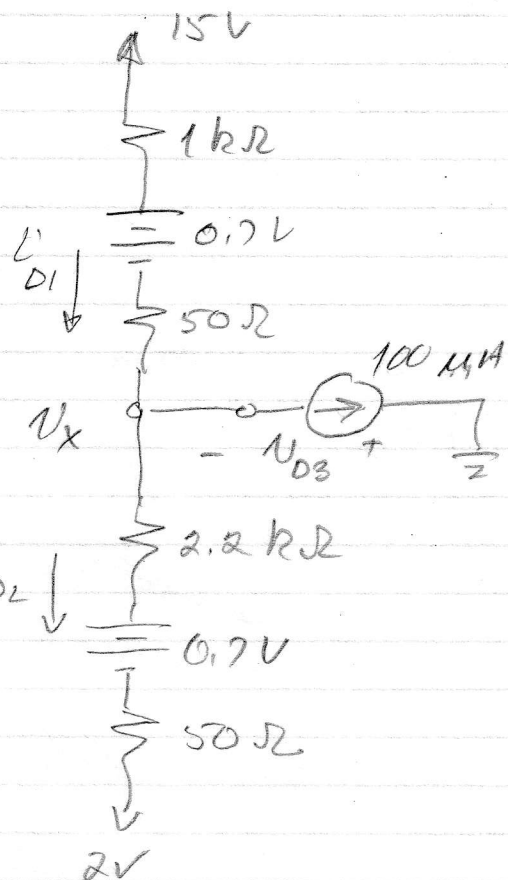 15V
1kΩ
0.7V
i_D1
50Ω
100 μA
v_x
- v_D3 +
2.2 kΩ
D2
0.7V
50Ω
2V